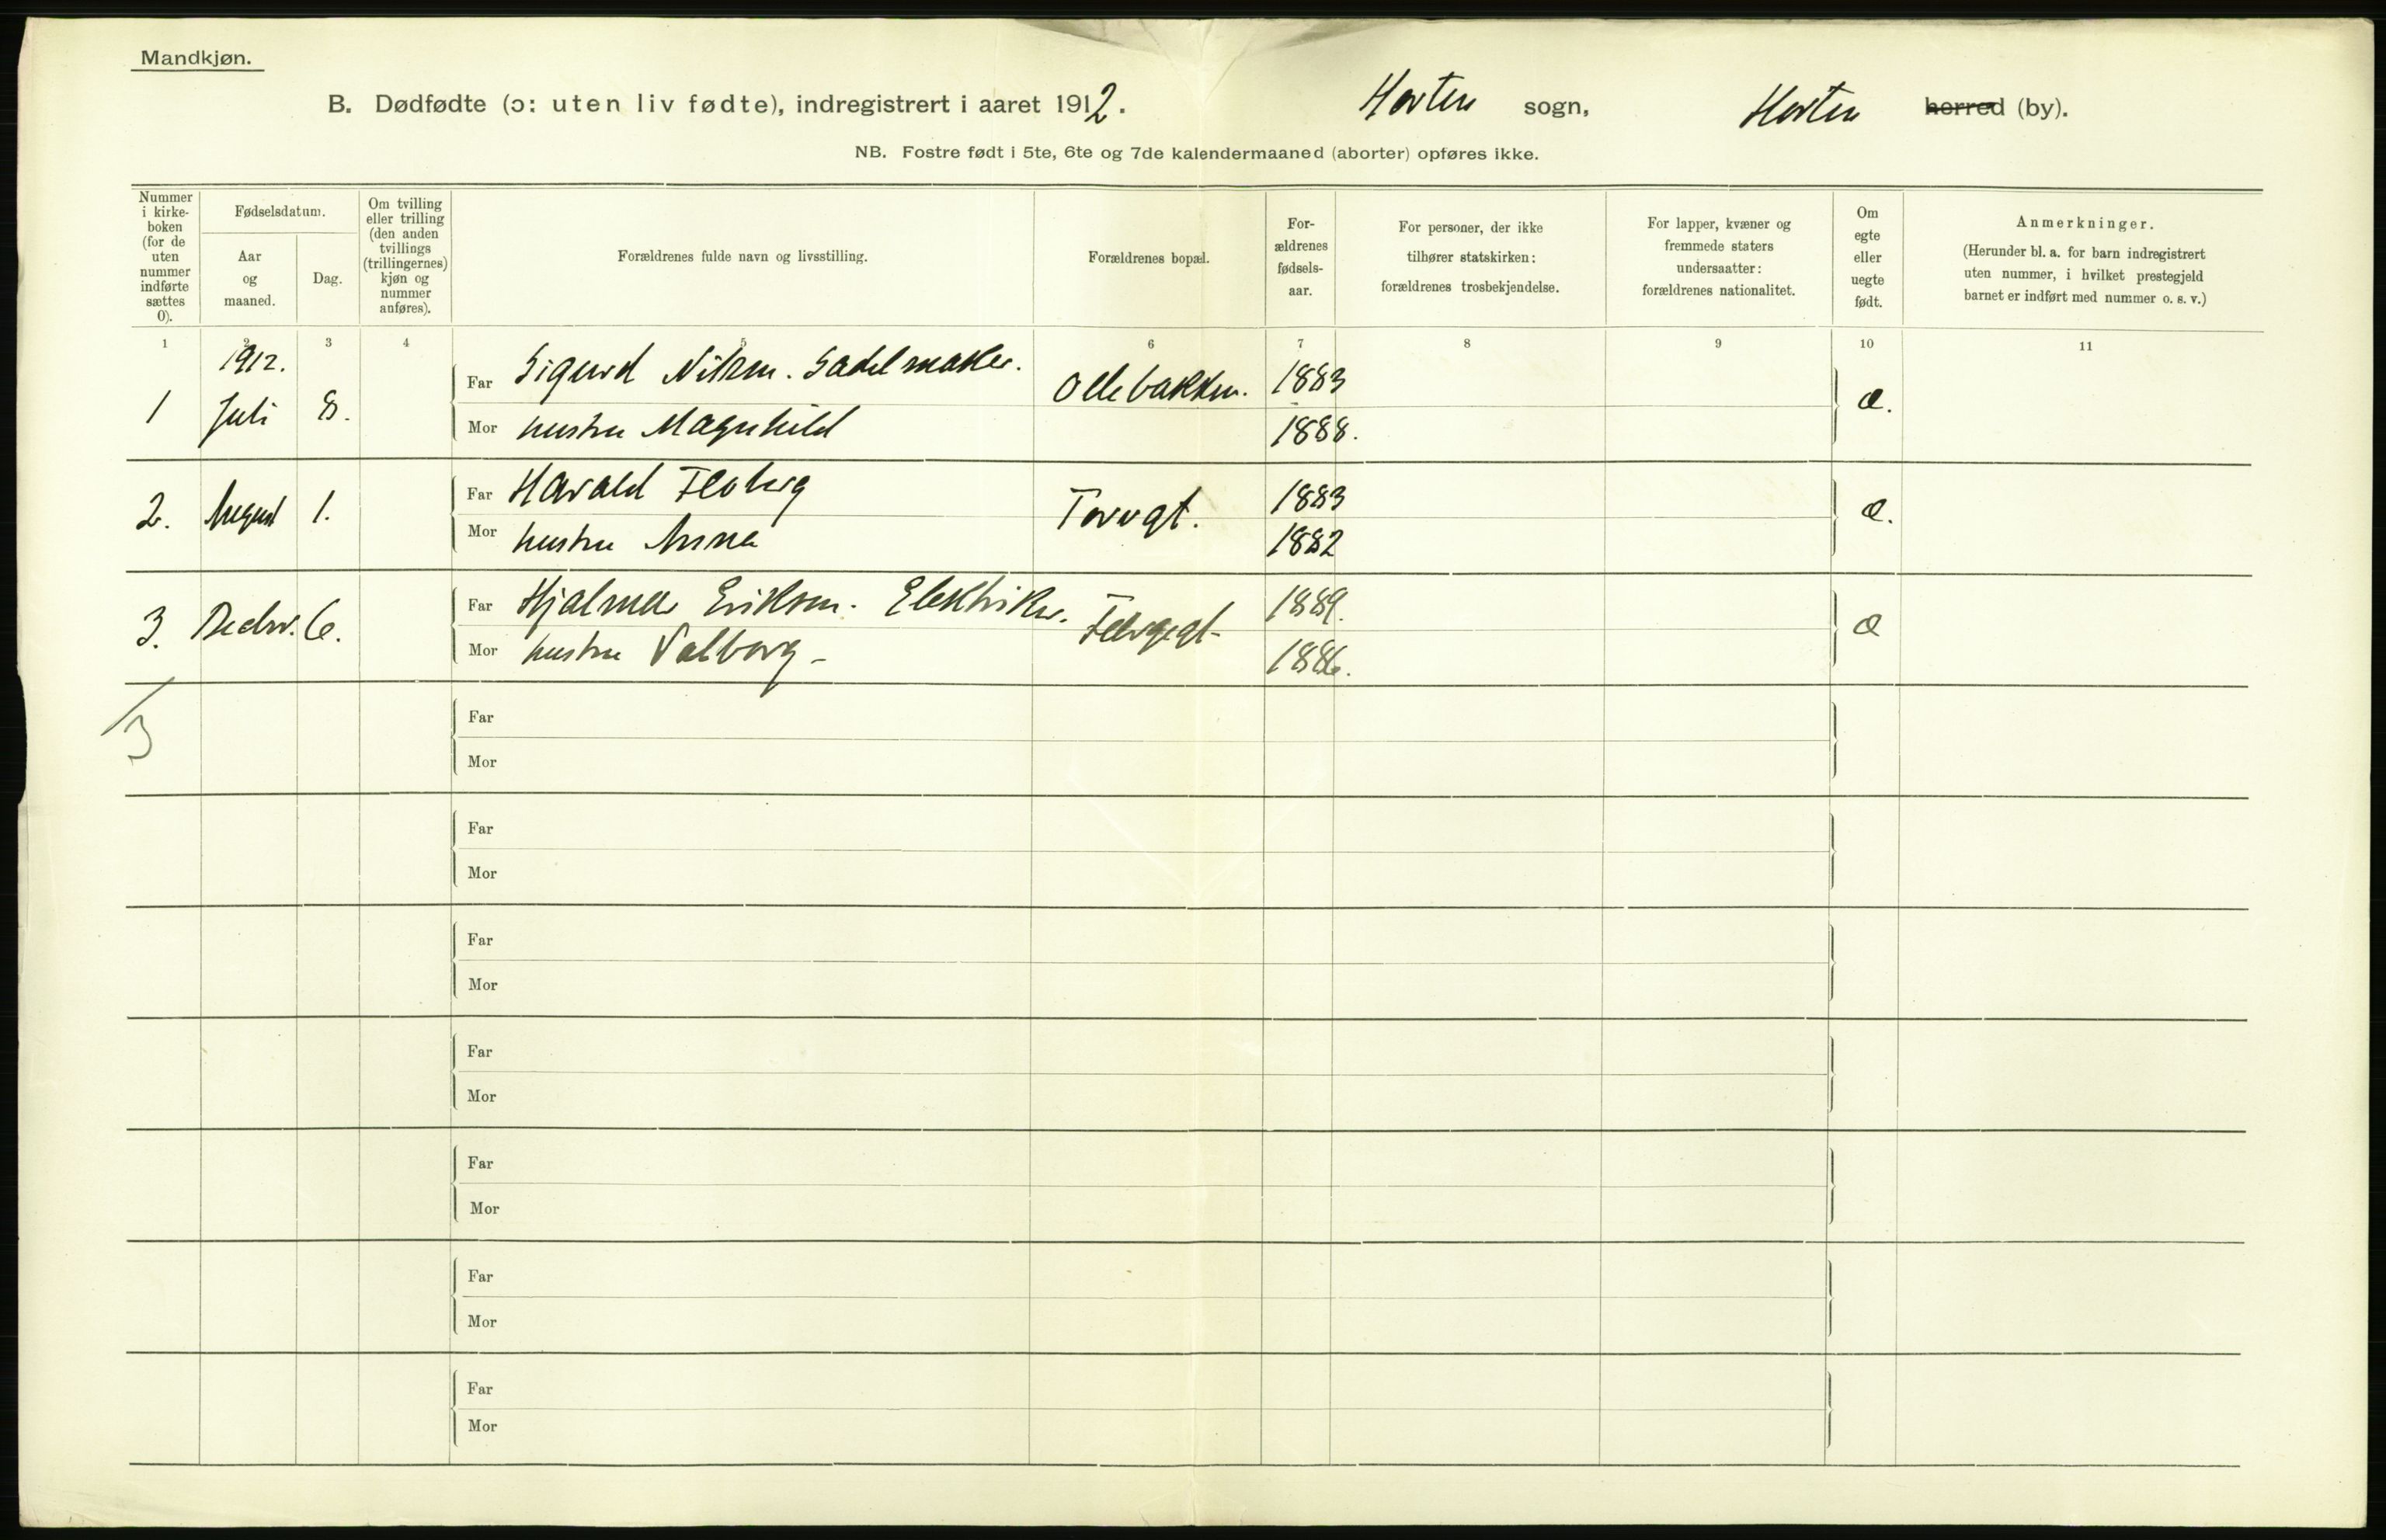 Mandkjøn.
B. Dødfødte (ɔ: uten liv fødte), indregistrert i aaret 1912. Horten sogn, Horten herred (by).
NB. Fostre født i 5te, 6te og 7de kalendermaaned (aborter) opføres ikke.
Nummer i kirke-boken (for de uten nummer indførte sættes 0).
Fødselsdatum.
Aar og maaned.
Dag.
Om tvilling eller trilling (den anden tvillings (trillingernes) kjøn og nummer anføres).
Forældrenes fulde navn og livsstilling.
Forældrenes bopæl.
For-ældrenes fødsels-aar.
For personer, der ikke tilhører statskirken: forældrenes trosbekjendelse.
For lapper, kvæner og fremmede staters undersaatter: forældrenes nationalitet.
Om egte eller uegte født.
Anmerkninger.
(Herunder bl. a. for barn indregistrert uten nummer, i hvilket prestegjeld barnet er indført med nummer o. s. v.)
1 2 3 4 5 6 7 8 9 10 11
1912.
1 Juli 8. Far Sigurd Nilsen. Sadelmaker. Ollebakken. 1883 æ.
Mor hustru Magnhild 1888.
2. August 1. Far Harald Torvgt. 1883 æ.
Mor hustru Anna 1882
3. Decbr. 6. Far Hjalmar Eriksen. Elektriker. 1889. æ
Mor hustru Valborg - 1886.
3
Far
Mor
Far
Mor
Far
Mor
Far
Mor
Far
Mor
Far
Mor
Far
Mor